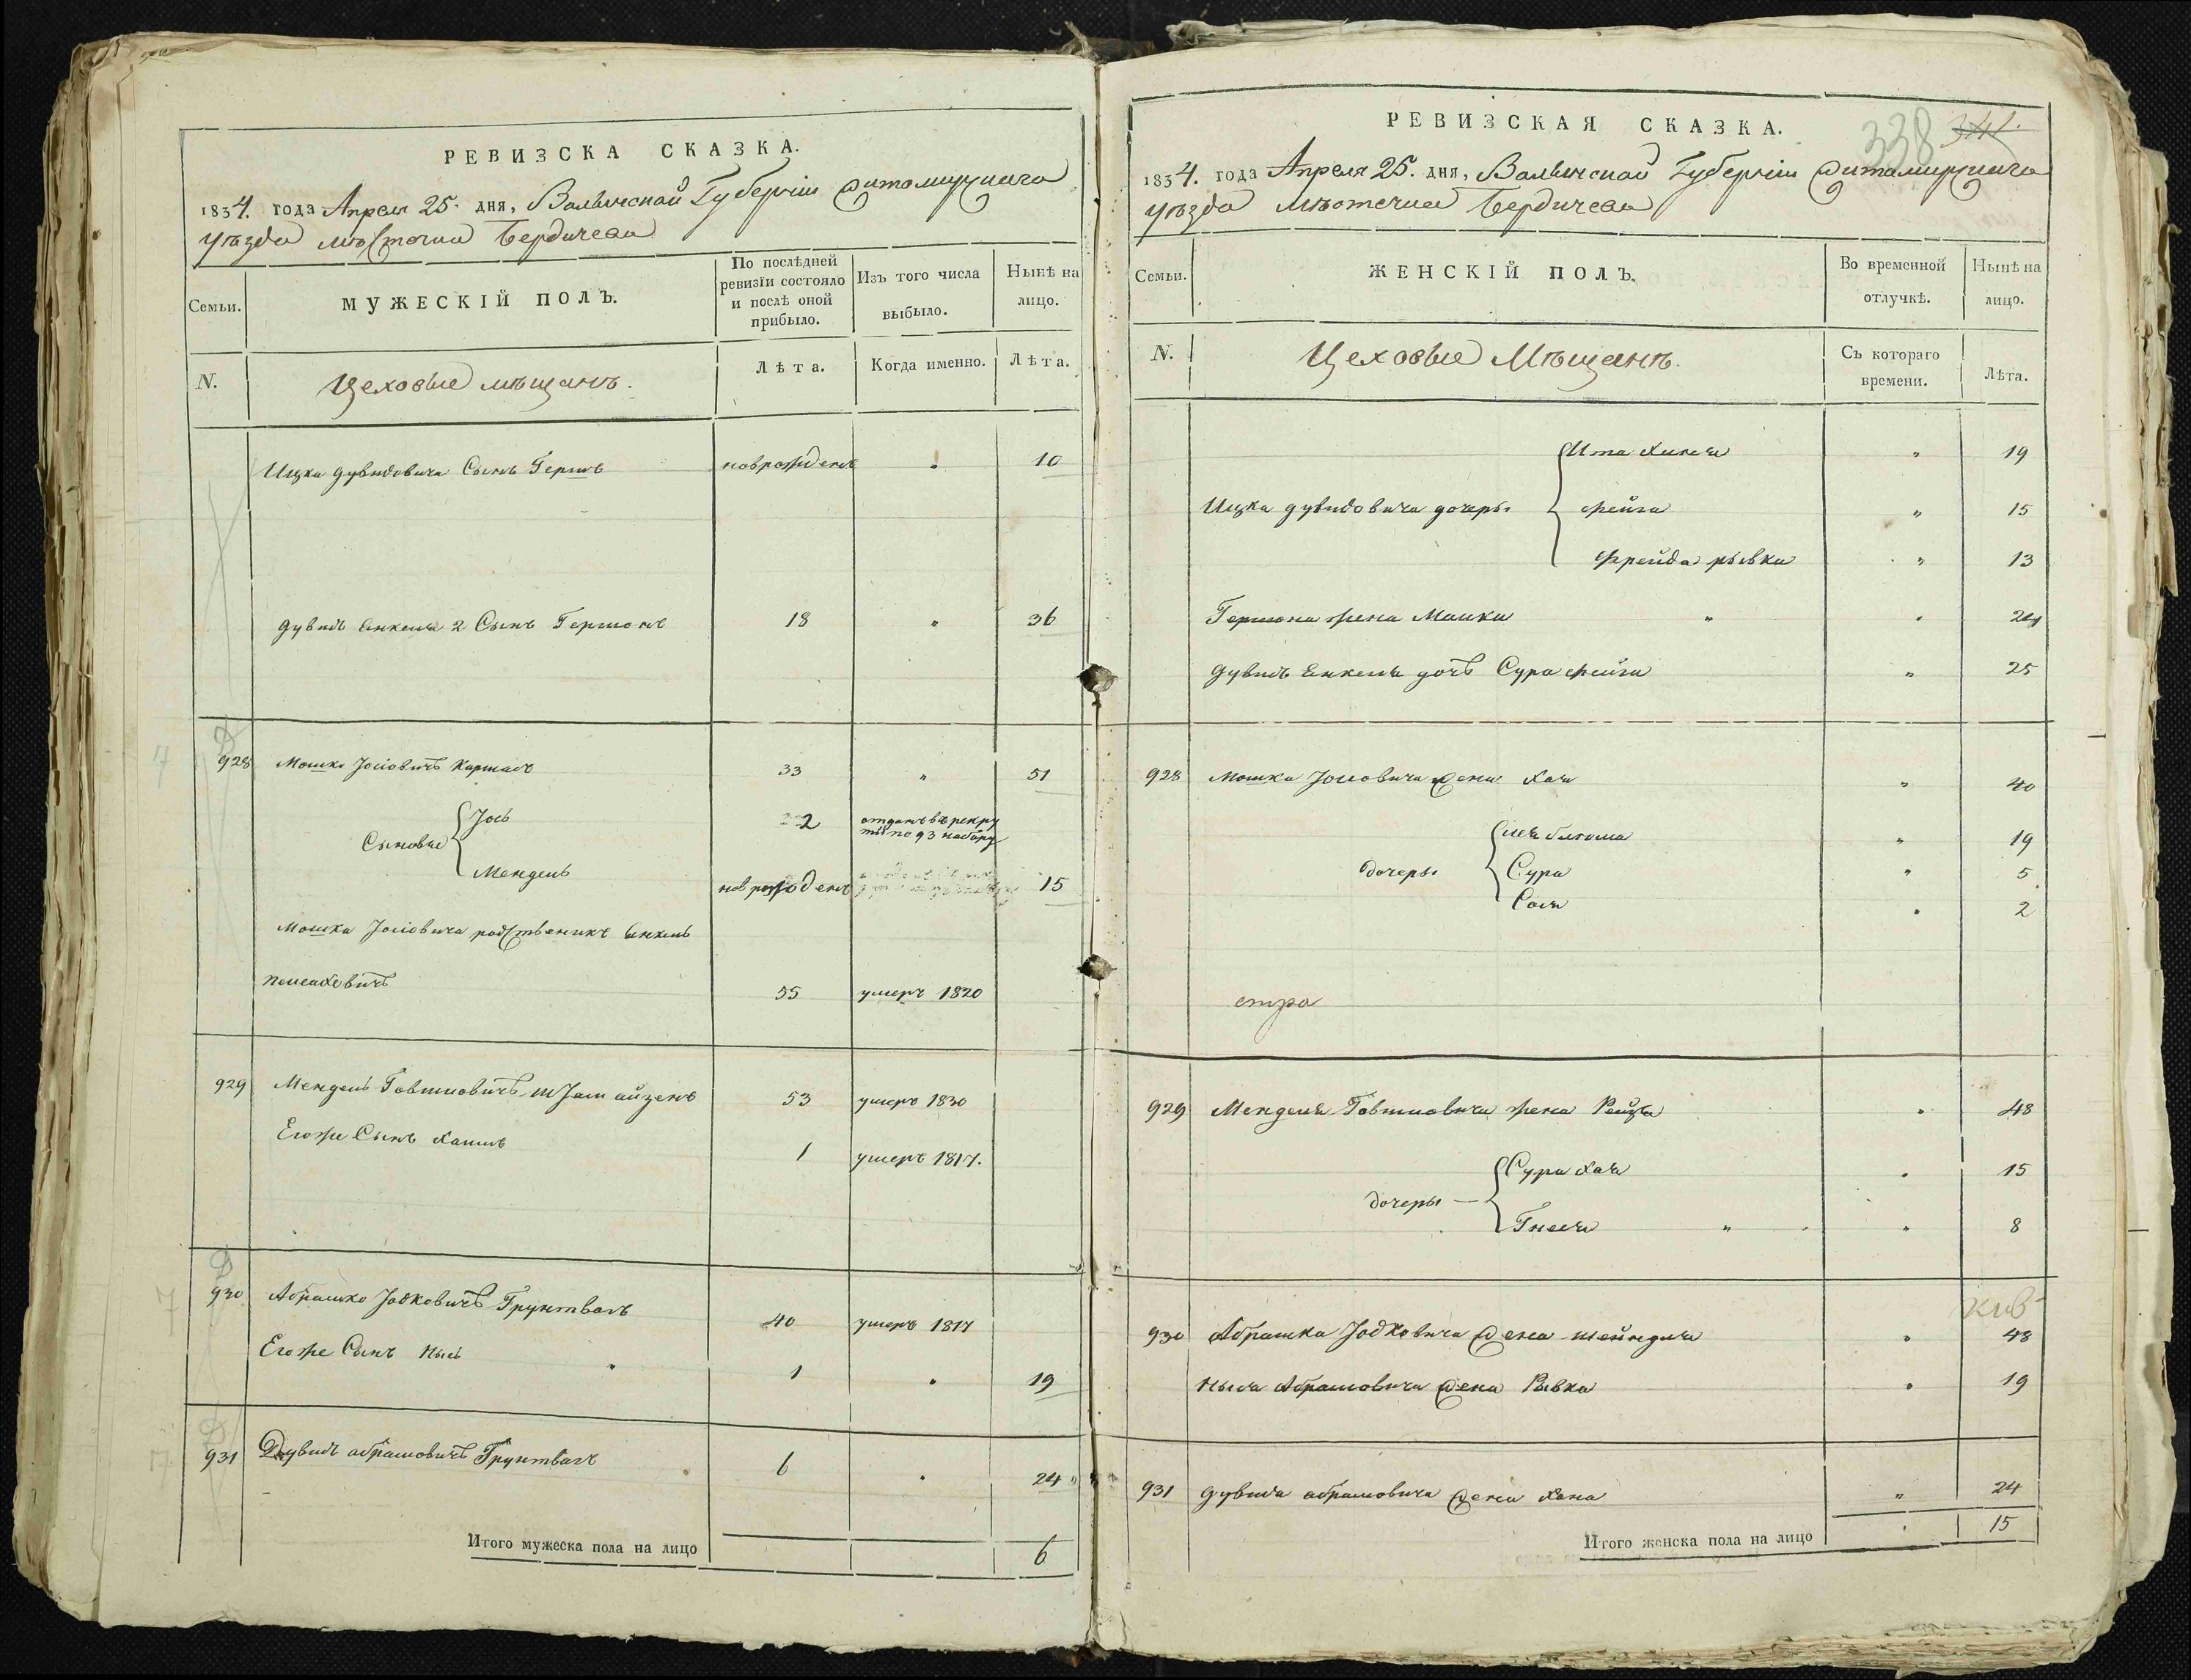 РЕВИЗСКА СКАЗКА.
1834. года Апреля 25. дня, Волынской Губернiи Житомирскаго
уѣзда мѣстечка Бердичева
Семьи.
МУЖЕСКІЙ ПОЛЪ.
По послѣдней
ревизіи состояло
и послѣ оной
прибыло.
Изъ того числа
выбыло.
Нынѣ на
лицо.
N.
Цеховые мѣщанъ.
Лѣта.
Когда именно.
Лѣта.
Ицка Дувидовича Сынъ Гершъ новрожденъ " 10
Дувидъ Янкеля 2 Сынъ Гершонъ 18 " 36
928 Мошко Іосіовичъ 33 " 51
Сыновья
Іось 2 отданъ въ рекру
ты по 93 набору
Мендель новрожденъ 15
Мошка Іосіовича родственикъ Янкель
Пейсаховичъ 55 умеръ 1820
929 Мендель 53 умеръ 1830
Егоже Сынъ Хаимъ 1 умеръ 1817.
930 Абрашко Іосковичъ Грунтвагъ 40 умеръ 1817
Егоже Сынъ Нысь " 1 " 19
931 Дувидъ Абрамовичъ Грунтвагъ 6 " 24
Итого мужеска пола на лицо 6
338 341.
РЕВИЗСКАЯ СКАЗКА.
1834. года Апреля 25. дня, Волынской Губернiи Житомирскаго
уѣзда мѣстечка Бердичева
Семьи.
ЖЕНСКІЙ ПОЛЪ.
Во временной
отлучкѣ.
Нынѣ на
лицо.
N.
Цеховые Мѣщанъ.
Съ котораго
времени.
Лѣта.
Ита " 19
Ицка Дувидовича дочеры Фейга " 15
Фрейда рывка " 13
Гершона жена Малка " "
Дувидъ Янкеля дочъ Сура Фейга " 25
928 Мошка Іосіовича жена Хая " 40
дочеры
" 19
Сура " 5
Сося " 2
929 Менделя жена Рейзя " 48
дочеры
Сура Хая " 15
Гнеся " " 8
930 Абрашка Іосковича жена Шейндля " 48
Ныся Абрамовича жена Рывка " 19
931 Дувида Абрамовича жена Хана " 24
Итого женска пола на лицо " 15